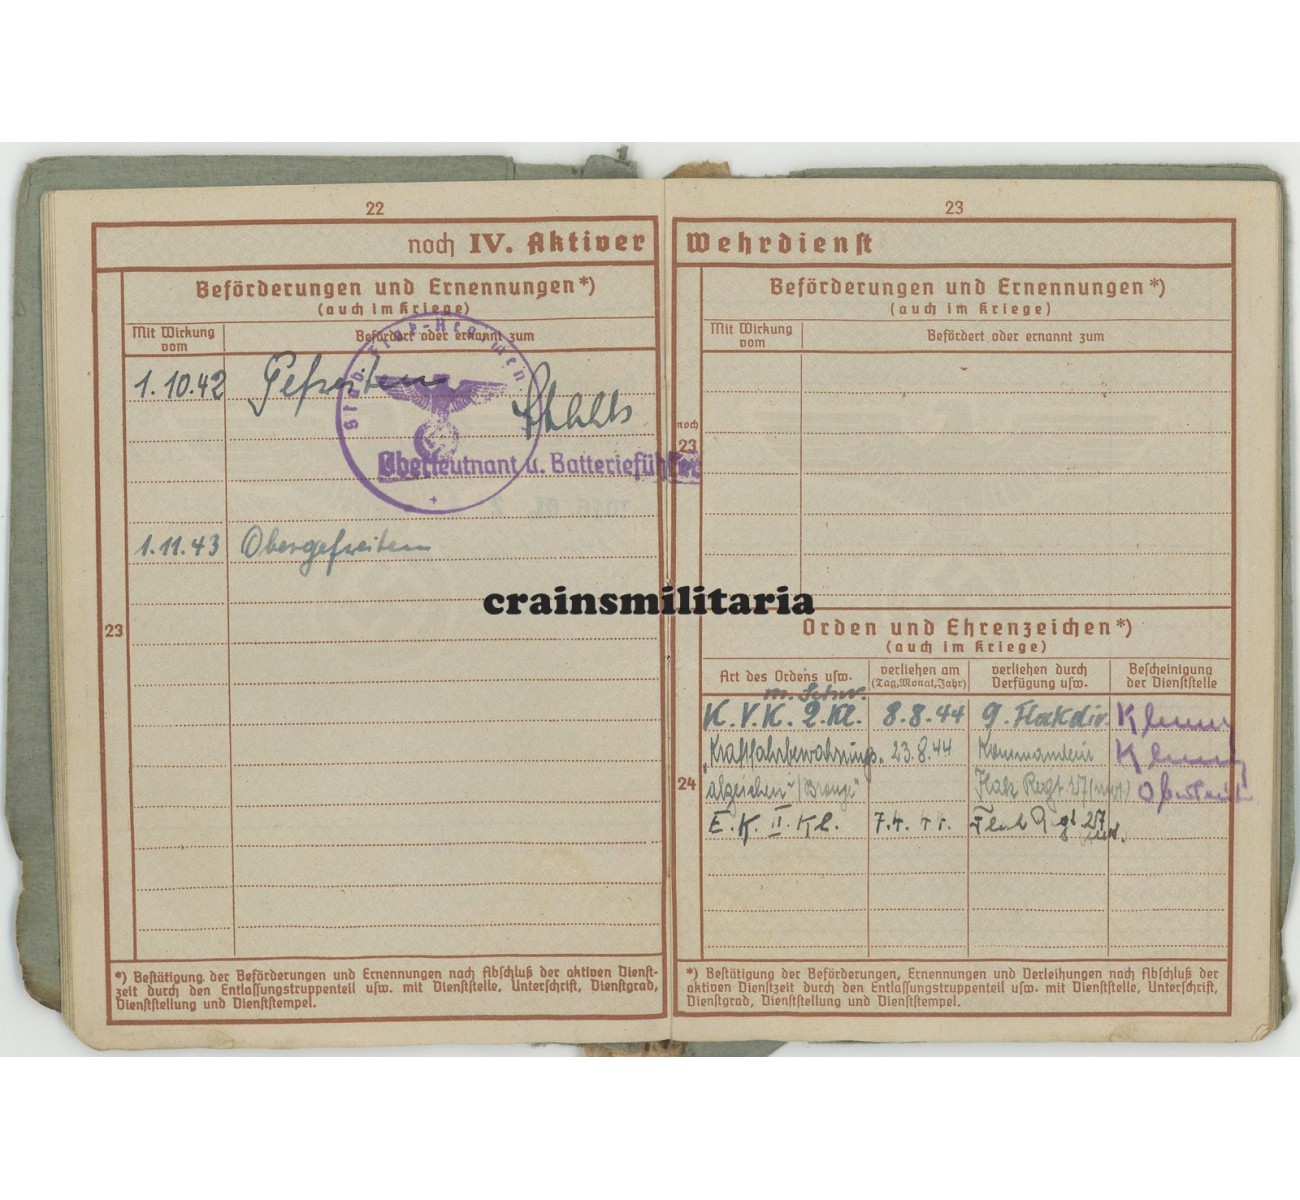 22
noch IV. Aktiver
Beförderungen und Ernennungen*)
(auch im Kriege)
Mit Wirkung vom
Befördert oder ernannt zum
1.10.42 Gefreiten
Stab Flak-Regimen
Oberleutnant u. Batterieführer
1.11.43 Obergefreiten
23
*) Bestätigung der Beförderungen und Ernennungen nach Abschluß der aktiven Dienst-
zeit durch den Entlassungstruppenteil usw. mit Dienststelle, Unterschrift, Dienstgrad,
Dienststellung und Dienststempel.
23
Wehrdienst
Beförderungen und Ernennungen*)
(auch im Kriege)
Mit Wirkung vom
Befördert oder ernannt zum
noch
23
crainsmilitaria
Orden und Ehrenzeichen*)
(auch im Kriege)
Art des Ordens usw.
verliehen am (Tag, Monat, Jahr)
verliehen durch Verfügung usw.
Bescheinigung der Dienststelle
m. Schw.
K.V.K. 2. Kl. 8.8.44 9. Flakdiv.
"Kraftfahrbewährungs- 23.8.44
abzeichen (Bronze" Flak Regt 27 (mot)
24
E.K. II. Kl.
*) Bestätigung der Beförderungen, Ernennungen und Verleihungen nach Abschluß der
aktiven Dienstzeit durch den Entlassungstruppenteil usw. mit Dienststelle, Unterschrift,
Dienstgrad, Dienststellung und Dienststempel.